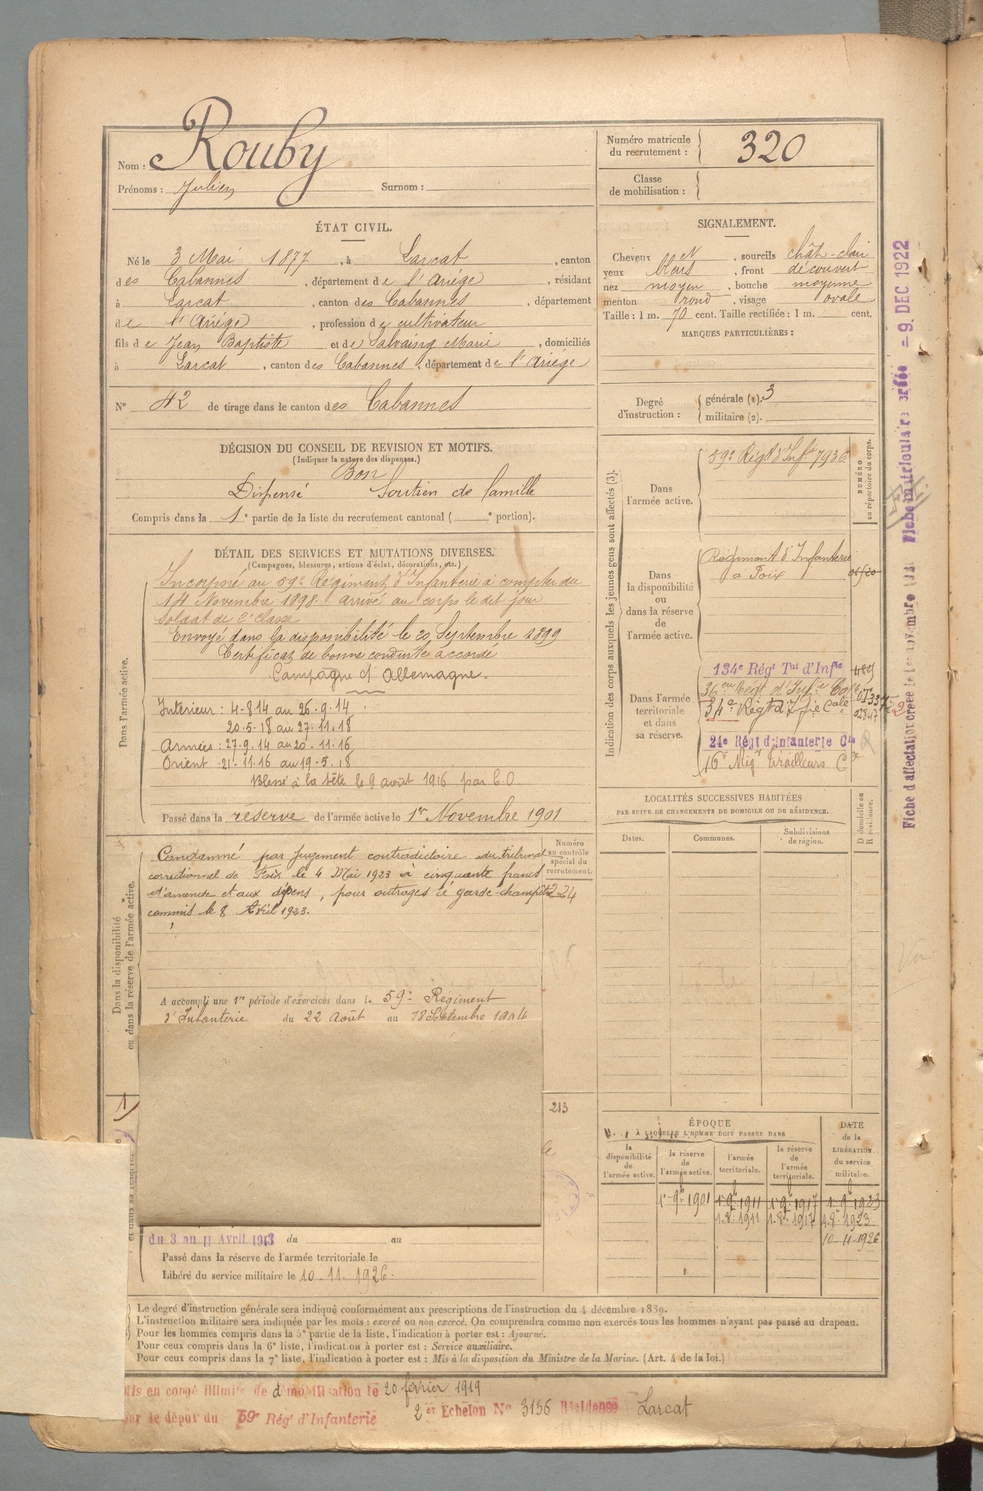 Nom : Rouby
Prénoms : Julien Surnom :
Numéro matricule du recrutement : 320
Classe de mobilisation :
ÉTAT CIVIL.
Né le 3 Mai 1877, à Larcat, canton
des Cabannes, département de l'Ariège, résidant
à Larcat, canton des Cabannes, département
de l'Ariège, profession de cultivateur
fils de Jean Baptiste et de Salvaing Marie, domiciliés
à Larcat, canton des Cabannes, département de l'Ariège
N° 42 de tirage dans le canton des Cabannes
SIGNALEMENT.
Cheveux, sourcils chât-clair
yeux, front découvert
nez moyen, bouche moyenne
menton rond, visage ovale
Taille : 1 m. 70 cent. Taille rectifiée : 1 m. cent.
MARQUES PARTICULIÈRES :
Degré d'instruction : générale (1). 3
militaire (2).
DÉCISION DU CONSEIL DE REVISION ET MOTIFS.
(Indiquer la nature des dispenses.)
Bon
Dispensé Soutien de famille
Compris dans la 1e partie de la liste du recrutement cantonal ( e portion).
DÉTAIL DES SERVICES ET MUTATIONS DIVERSES.
(Campagnes, blessures, actions d'éclat, décorations, etc.)
Dans l'armée active.
Incorporé au 59e Régiment d'Infanterie à compter du
14 Novembre 1898. Arrivé au corps le dit jour
Soldat de 2e Classe
Envoyé dans la disponibilité le 20 Septembre 1899
Certificat de bonne conduite accordé
Campagne d'Allemagne.
Intérieur : 4-8 14 au 26.9.14
20.5.18 au 27.11.18
Armées : 27.9.14 au 20.11.16
Orient : 21.11.16 au 19.5.18
Blessé à la tête le 9 août 1916 par E.O.
Passé dans la réserve de l'armée active le 1er Novembre 1901
Indication des corps auxquels les jeunes gens sont affectés (3).
NUMÉRO au répertoire du corps.
Dans l'armée active. 59e Régt d'Infie 7936
Dans la disponibilité ou dans la réserve de l'armée active. Régiment d'Infanterie
à Foix
Dans l'armée territoriale et dans sa réserve. 134e Régt Tal d'Infie
36e Régt d'Infie Cole
34e Régt d'Infie Cale
24e Régt d'Infanterie Cle
16e Tirailleurs
Dans la disponibilité ou dans la réserve de l'armée active.
Numéro au contrôle spécial du recrutement.
Condamné par jugement contradictoire du tribunal
correctionnel de Foix le 4 Mai 1923 à cinquante francs
d'amende et aux dépens, pour outrages à garde-champêtre
commis le 8 Avril 1923.
A accompli une 1re période d'exercices dans le 59e Régiment
d'Infanterie du 22 Août au 18 Septembre 1904
213
LOCALITÉS SUCCESSIVES HABITÉES
PAR SUITE DE CHANGEMENTS DE DOMICILE OU DE RÉSIDENCE.
Dates. Communes. Subdivisions de région. D domicile ou R résidence.
ÉPOQUE
À LAQUELLE L'HOMME DOIT PASSER DANS
DATE de la LIBÉRATION du service militaire.
la disponibilité de l'armée active. la réserve de l'armée active. l'armée territoriale. la réserve de l'armée territoriale.
1-9b 1901 1-9b 1911 1-9b 1917 1-9b 1923
1.8b 1911 1.8b 1917 1.8b 1923
10-11-1926
du 3 au 11 Avril 1913 du au
Passé dans la réserve de l'armée territoriale le
Libéré du service militaire le 10-11-1926.
Le degré d'instruction générale sera indiqué conformément aux prescriptions de l'instruction du 4 décembre 1889.
L'instruction militaire sera indiquée par les mots : exercé ou non exercé. On comprendra comme non exercés tous les hommes n'ayant pas passé au drapeau.
Pour les hommes compris dans la 5e partie de la liste, l'indication à porter est : Ajourné.
Pour ceux compris dans la 6e liste, l'indication à porter est : Service auxiliaire.
Pour ceux compris dans la 7e liste, l'indication à porter est : Mis à la disposition du Ministre de la Marine. (Art. 4 de la loi.)
Mis en congé illimité de démobilisation le 20 février 1919
par le dépôt du 59e Régt d'Infanterie 2e Echelon N° 3136 Résidence Larcat
Fiche d'affectation créée le 1er novembre Fiche matriculaire créée - 9. DEC 1922